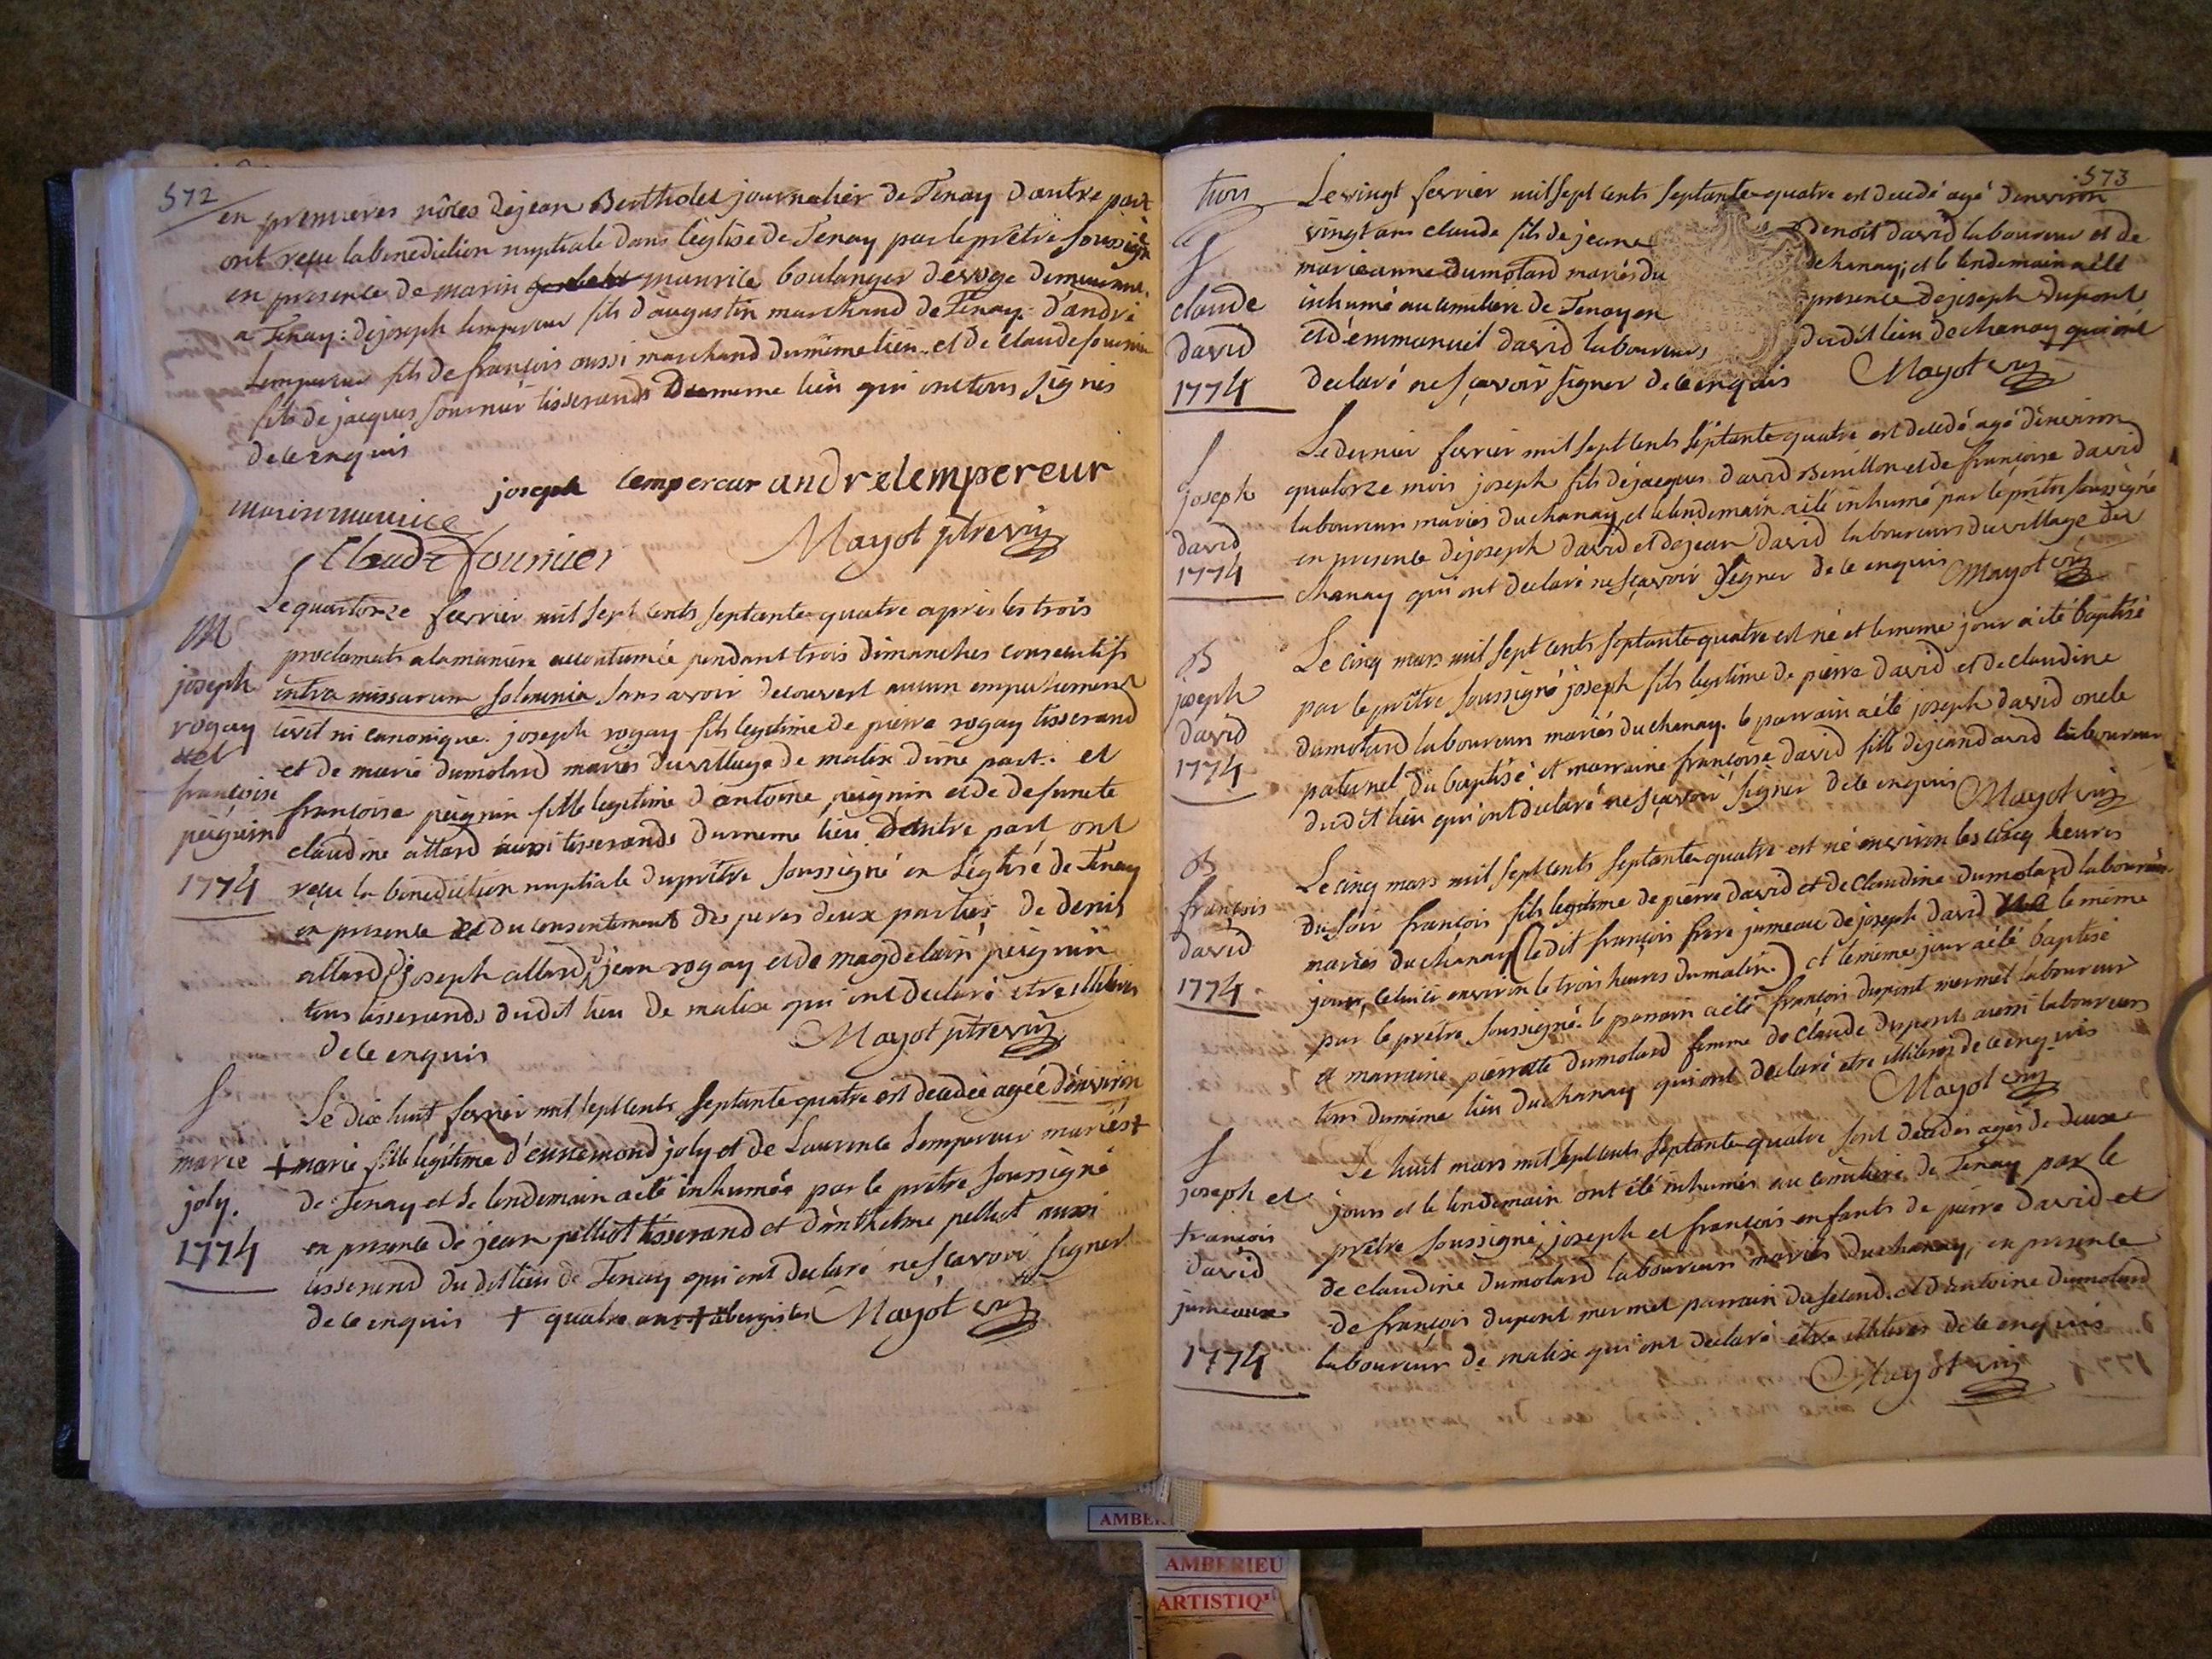 572
en premieres nôces de jean Bertholet journalier de Tenay d'autre part
ont reçu la benediction nuptiale dans l'eglise de Tenay par le prêtre soussigné
en presence de marin maurice boulanger demeurant
a Tenay: de joseph lempereur fils d'augustin marchand de Tenay d'andré
lempereur fils de françois aussi marchand du meme lieu. et de claude fournier
fils de jacques fournier tisserands du meme lieu qui ont tous signés
de ce enquis
joseph lempereur andrelempereur
marin maurice
Claude fournier
Mayot ptre vic
M
joseph
rogay
et
françoise
peignin
1774
Le quatorze fevrier mil sept cents septante quatre après les trois
proclamats a la manière accoutumée pendant trois dimanches consecutifs
intra missarum solemnia sans avoir decouvert aucun empechement
civil ni canonique. joseph rogay fils legitime de pierre rogay tisserand
et de marie dumolard mariés du village de malix d'une part. et
françoise peignin fille legitime d'antoine peignin et de defuncte
claudine allard aussi tisserands du meme lieu d'autre part ont
reçu la benediction nuptiale du prêtre soussigné en l'église de Tenay
en presence et du consentement des peres deux parties de denis
allard, joseph allard, jean rogay et de magdelain peignin
tous tisserands dudit lieu de malix qui ont declaré etre illiteres
de ce enquis
Mayot ptre vic
S
marie
joly.
1774
Le dix huit fevrier mil sept cents septante quatre est decedée agée d'environ
+ marie fille legitime d'ennemond joly et de Laurence Lempereur mariés +
de Tenay et le lendemain a été inhumée par le prêtre soussigné
en presence de jean pelliot tisserand et d'anthelme pelliot aussi
tisserand du dit lieu de Tenay qui ont declaré ne sçavoir signer
de ce enquis + quatre ans + abergistes Mayot vic
573
trois
S
claude
david
1774
Le vingt fevrier mil sept cents septante quatre est decedé agé d'environ
vingt ans claude fils de jeane Benoit david laboureur et de
marieanne dumolard mariés du dechanay; et le lendemain a été
inhumé au cimetiere de Tenay en presence de joseph dupont
et d'emmanuel david laboureurs dudit lieu de chanay qui ont
declaré ne sçavoir signer de ce enquis Mayot vic
S
joseph
david
1774
Le dernier fevrier mil sept cents septante quatre est decedé agé d'environ
quatorze mois joseph fils de jacques david et de françoise david
laboureurs mariés du chanay, et le lendemain a été inhumé par le prêtre soussigné
en presence de joseph david et de jean david laboureurs du village du
chanay qui ont declaré ne sçavoir signer de ce enquis Mayot vic
B
joseph
david
1774
Le cinq mars mil sept cents septante quatre est né et le meme jour a été baptisé
par le prêtre soussigné joseph fils legitime de pierre david et de claudine
dumolard laboureurs mariés du chanay. le parrain a été joseph david oncle
paternel du baptisé et marraine françoise david fille de jean david laboureur
dudit lieu qui ont declaré ne sçavoir signer de ce enquis Mayot vic
B
françois
david
1774
Le cinq mars mil sept cents septante quatre est né environ les cinq heures
du soir françois fils legitime de pierre david et de claudine dumolard laboureurs
mariés du chanay (ledit françois frere jumeau de joseph david né le même
jour, celui ci environ le trois heures du matin.) et le meme jour a été baptisé
par le prêtre soussigné. le parrain a été françois dupont mermet laboureur
et marraine pierrette dumolard femme de claude dupont aussi laboureurs
tous du même lieu du chanay qui ont declaré etre illiteres de ce enquis
Mayot vic
S
joseph et
françois
david
jumeaux
1774
Le huit mars mil sept cents septante quatre sont decedés agés de deux
jours et le lendemain ont été inhumés au cimetiere de Tenay par le
prêtre soussigné, joseph et françois enfants de pierre david et
de claudine dumolard laboureurs mariés du chanay, en presence
de françois dupont mermet parrain du second. et d'antoine dumolard
laboureur de malix qui ont declaré etre illiteres de ce enquis
Mayot vic
AMBERIEU
ARTISTIQ